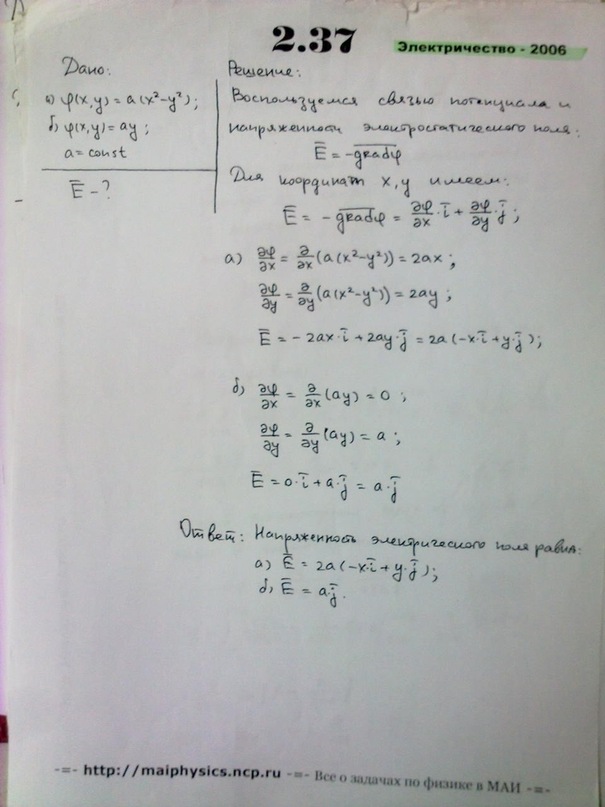 2.37
Электричество - 2006
Дано:
а) φ(x,y) = a(x²-y²);
б) φ(x,y) = ay;
a = const
Ē - ?
Решение:
Воспользуемся связью потенциала и
напряженности электростатического поля:
Ē = -grad φ
Для координат x, y имеем:
Ē = - grad φ = ∂φ/∂x · i̅ + ∂φ/∂y · j̅ ;
а) ∂φ/∂x = ∂/∂x (a(x²-y²)) = 2ax ;
∂φ/∂y = ∂/∂y (a(x²-y²)) = 2ay ;
Ē = - 2ax·i̅ + 2ay·j̅ = 2a(-x·i̅ + y·j̅);
б) ∂φ/∂x = ∂/∂x (ay) = 0 ;
∂φ/∂y = ∂/∂y (ay) = a ;
Ē = 0·i̅ + a·j̅ = a·j̅
Ответ: Напряженность электрического поля равна:
а) Ē = 2a(-x·i̅ + y·j̅);
б) Ē = a·j̅.
-=- http://maiphysics.ncp.ru -=- Все о задачах по физике в МАИ -=-